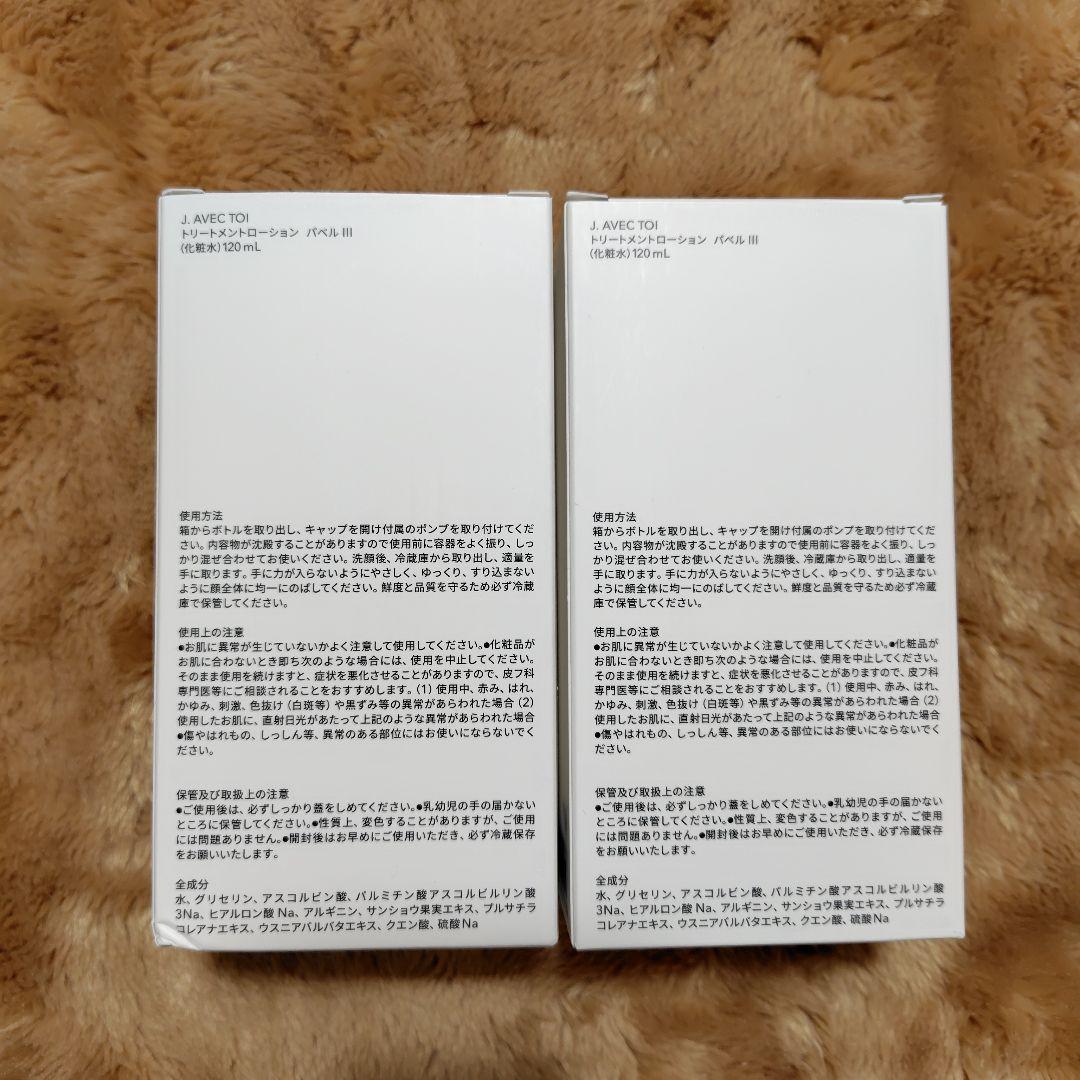 J. AVEC TOI
トリートメントローション パベル III
(化粧水)120 mL
使用方法
箱からボトルを取り出し、キャップを開け付属のポンプを取り付けてくだ
さい。内容物が沈殿することがありますので使用前に容器をよく振り、しっ
かり混ぜ合わせてお使いください。洗顔後、冷蔵庫から取り出し、適量を
手に取ります。手に力が入らないようにやさしく、ゆっくり、すり込まない
ように顔全体に均一にのばしてください。鮮度と品質を守るため必ず冷蔵
庫で保管してください。
使用上の注意
●お肌に異常が生じていないかよく注意して使用してください。●化粧品が
お肌に合わないとき即ち次のような場合には、使用を中止してください。
そのまま使用を続けますと、症状を悪化させることがありますので、皮フ科
専門医等にご相談されることをおすすめします。(1) 使用中、赤み、はれ、
かゆみ、刺激、色抜け (白斑等) や黒ずみ等の異常があらわれた場合 (2)
使用したお肌に、直射日光があたって上記のような異常があらわれた場合
●傷やはれもの、しっしん等、異常のある部位にはお使いにならないでく
ださい。
保管及び取扱上の注意
●ご使用後は、必ずしっかり蓋をしめてください。●乳幼児の手の届かない
ところに保管してください。●性質上、変色することがありますが、ご使用
には問題ありません。●開封後はお早めにご使用いただき、必ず冷蔵保存
をお願いいたします。
全成分
水、グリセリン、アスコルビン酸、パルミチン酸アスコルビルリン酸
3Na、ヒアルロン酸 Na、アルギニン、サンショウ果実エキス、プルサチラ
コレアナエキス、ウスニアバルバタエキス、クエン酸、硫酸Na
J. AVEC TOI
トリートメントローション パベル III
(化粧水)120 mL
使用方法
箱からボトルを取り出し、キャップを開け付属のポンプを取り付けてくだ
さい。内容物が沈殿することがありますので使用前に容器をよく振り、しっ
かり混ぜ合わせてお使いください。洗顔後、冷蔵庫から取り出し、適量を
手に取ります。手に力が入らないようにやさしく、ゆっくり、すり込まない
ように顔全体に均一にのばしてください。鮮度と品質を守るため必ず冷蔵
庫で保管してください。
使用上の注意
●お肌に異常が生じていないかよく注意して使用してください。●化粧品が
お肌に合わないとき即ち次のような場合には、使用を中止してください。
そのまま使用を続けますと、症状を悪化させることがありますので、皮フ科
専門医等にご相談されることをおすすめします。(1) 使用中、赤み、はれ、
かゆみ、刺激、色抜け (白斑等) や黒ずみ等の異常があらわれた場合 (2)
使用したお肌に、直射日光があたって上記のような異常があらわれた場合
●傷やはれもの、しっしん等、異常のある部位にはお使いにならないでく
ださい。
保管及び取扱上の注意
●ご使用後は、必ずしっかり蓋をしめてください。●乳幼児の手の届かない
ところに保管してください。●性質上、変色することがありますが、ご使用
には問題ありません。●開封後はお早めにご使用いただき、必ず冷蔵保存
をお願いいたします。
全成分
水、グリセリン、アスコルビン酸、パルミチン酸アスコルビルリン酸
3Na、ヒアルロン酸 Na、アルギニン、サンショウ果実エキス、プルサチラ
コレアナエキス、ウスニアバルバタエキス、クエン酸、硫酸Na